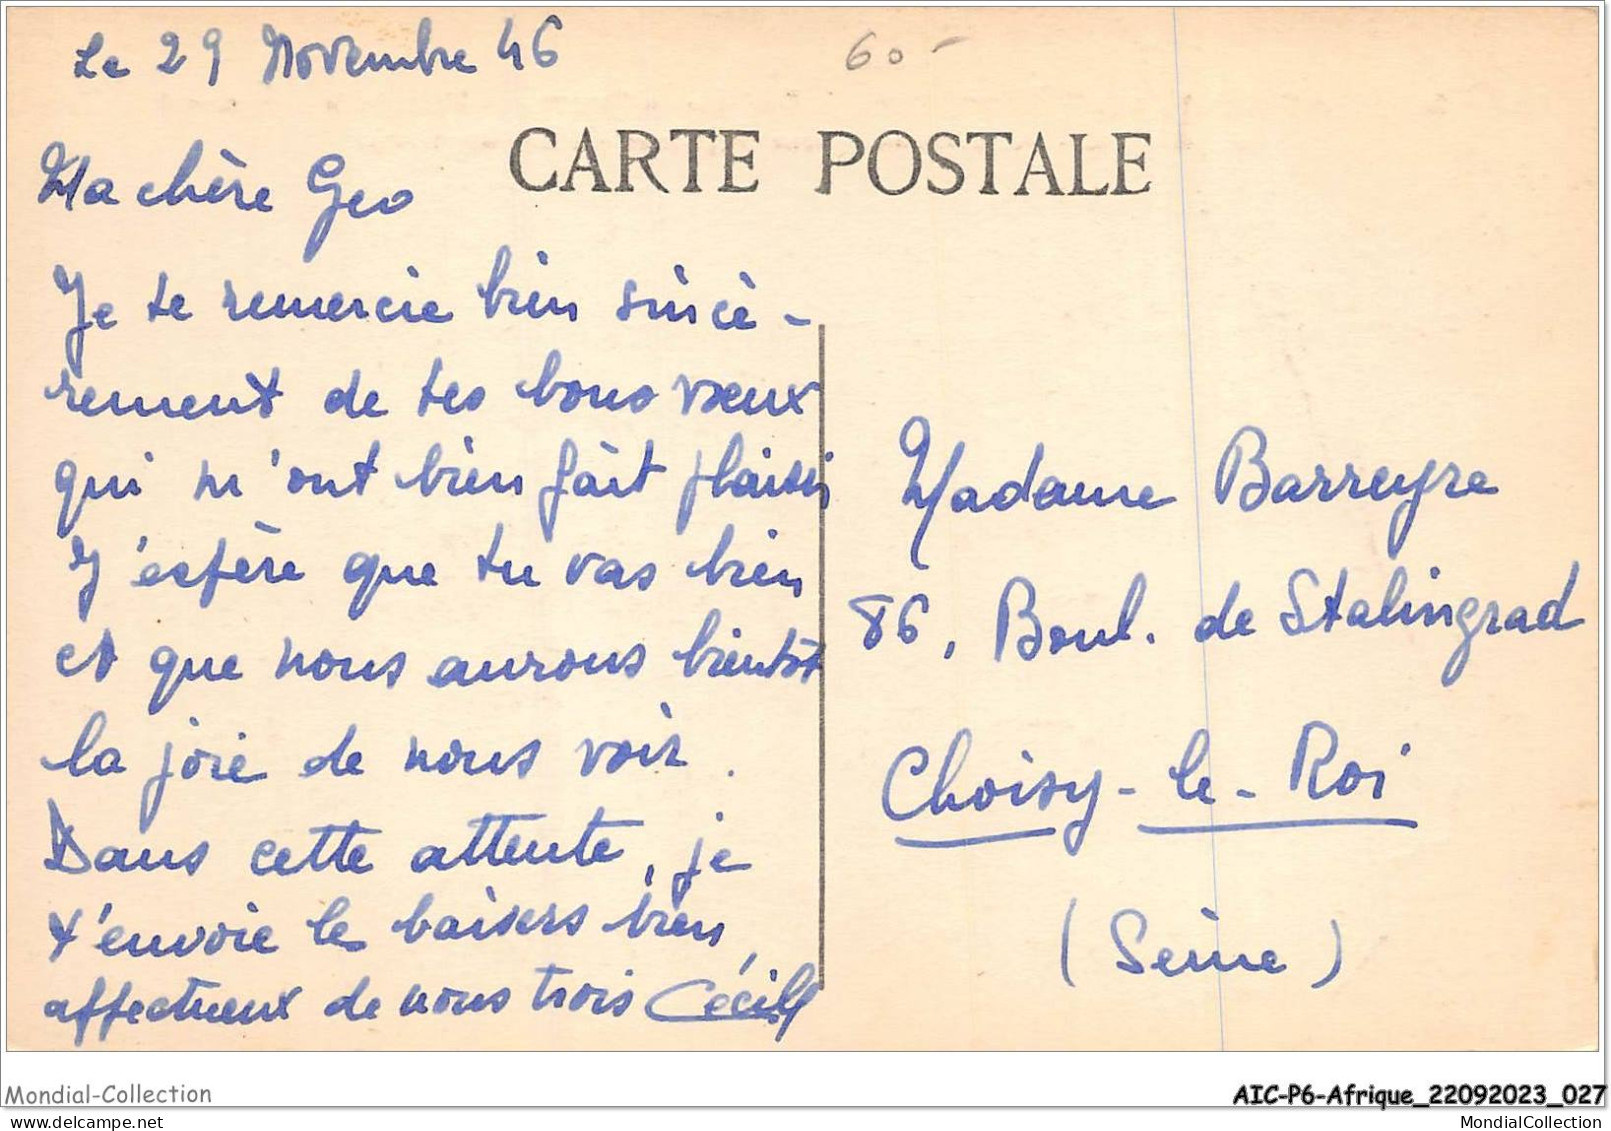 Le 29 Novembre 46
60.-
CARTE POSTALE
Ma chère Geo
Je te remercie bien sincè-
rement de tes bons vœux
qui m'ont bien fait plaisir
J'espère que tu vas bien
et que nous aurons bientôt
la joie de nous voir.
Dans cette attente, je
t'envoie le baisers bien
affectueux de nous trois Cécile
Madame Barreyre
86, Boul. de Stalingrad
Choisy-le-Roi
(Seine)
Mondial-Collection
AIC-P6-Afrique_22092023_027
www.delcampe.net
MondialCollection